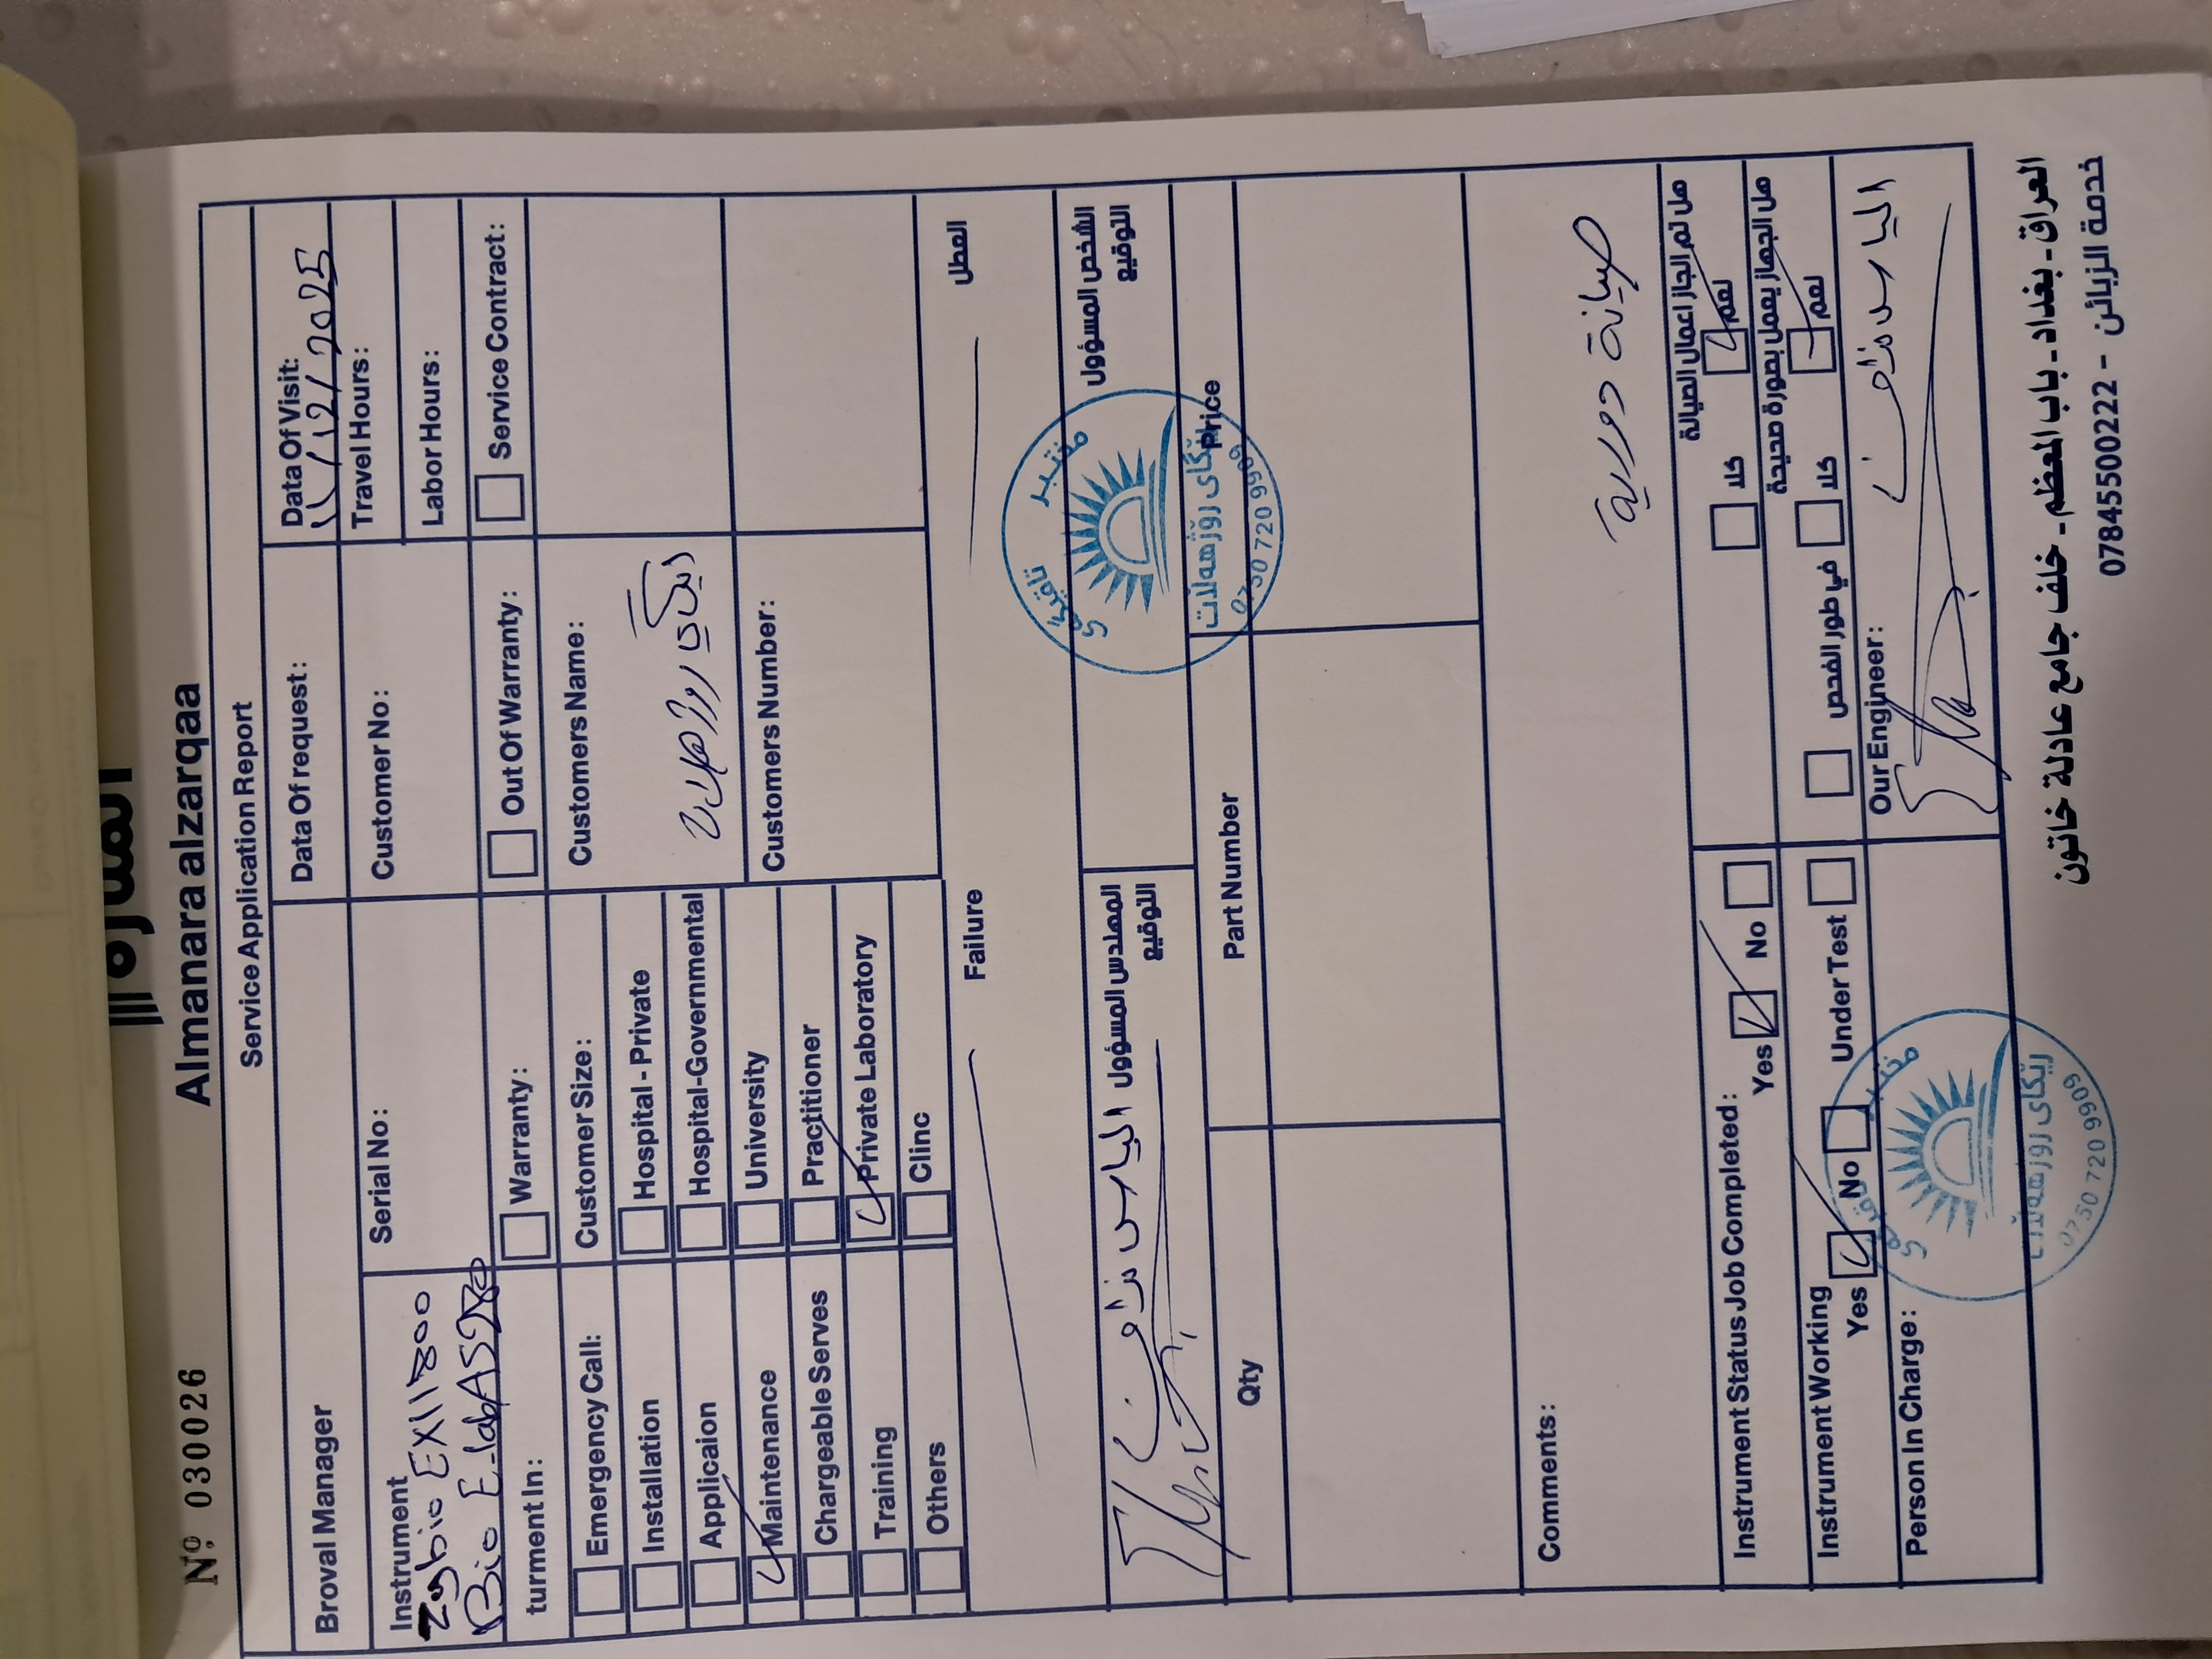 Nº 030026
المنارة
Almanara alzarqaa
Service Application Report
Broval Manager
Data Of request:
Data Of Visit:
11/12/2025
Instrument
Zybio EXI1800
Bio Elab AS280
Serial No:
Customer No:
Travel Hours:
Labor Hours:
turment In:
Warranty:
Out Of Warranty:
Service Contract:
Emergency Call:
Installation
Applicaion
Maintenance
Chargeable Serves
Training
Others
Customer Size:
Hospital - Private
Hospital-Governmental
University
Practitioner
Private Laboratory
Clinc
Customers Name:
ريگاي روژهەلات
Customers Number:
Failure
العطل
المهندس المسؤول
التوقيع
الشخص المسؤول
التوقيع
تاقیگەی
موختبر
ڕێگای ڕۆژهەڵات
0750 720 9909
Qty
Part Number
Price
Comments:
صيانة دورية
Instrument Status Job Completed:
Yes
No
هل تم انجاز اعمال الصيانة
نعم
كلا
Instrument Working
Yes
No
Under Test
هل الجهاز يعمل بصورة صحيحة
نعم
كلا
في طور الفحص
Person In Charge:
Our Engineer:
ڕێگای ڕۆژهەڵات
0750 720 9909
العراق - بغداد - باب المعظم - خلف جامع عادلة خاتون
خدمة الزبائن - 07845500222